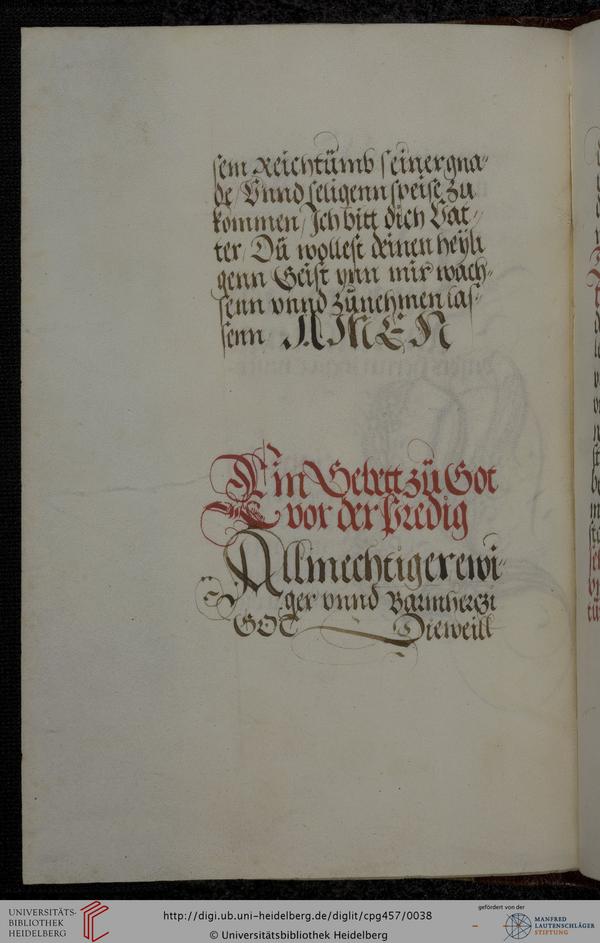 sem Reichtümb seiner gna⸗
de / Vnnd seligenn speise zu
kommen / Ich bitt dich Vat⸗
ter / Dü wollest deinen heyli
genn Geist ynn mir wach⸗
senn vnnd zünehmen las⸗
senn AMEN
Ain Gebett zü Got
vor der Predig
Allmechtiger ewi⸗
ger vnnd Barmhertzi
GOT Dieweill
UNIVERSITÄTS-
BIBLIOTHEK
HEIDELBERG
http://digi.ub.uni-heidelberg.de/diglit/cpg457/0038
© Universitätsbibliothek Heidelberg
gefördert von der
MANFRED
LAUTENSCHLÄGER
STIFTUNG